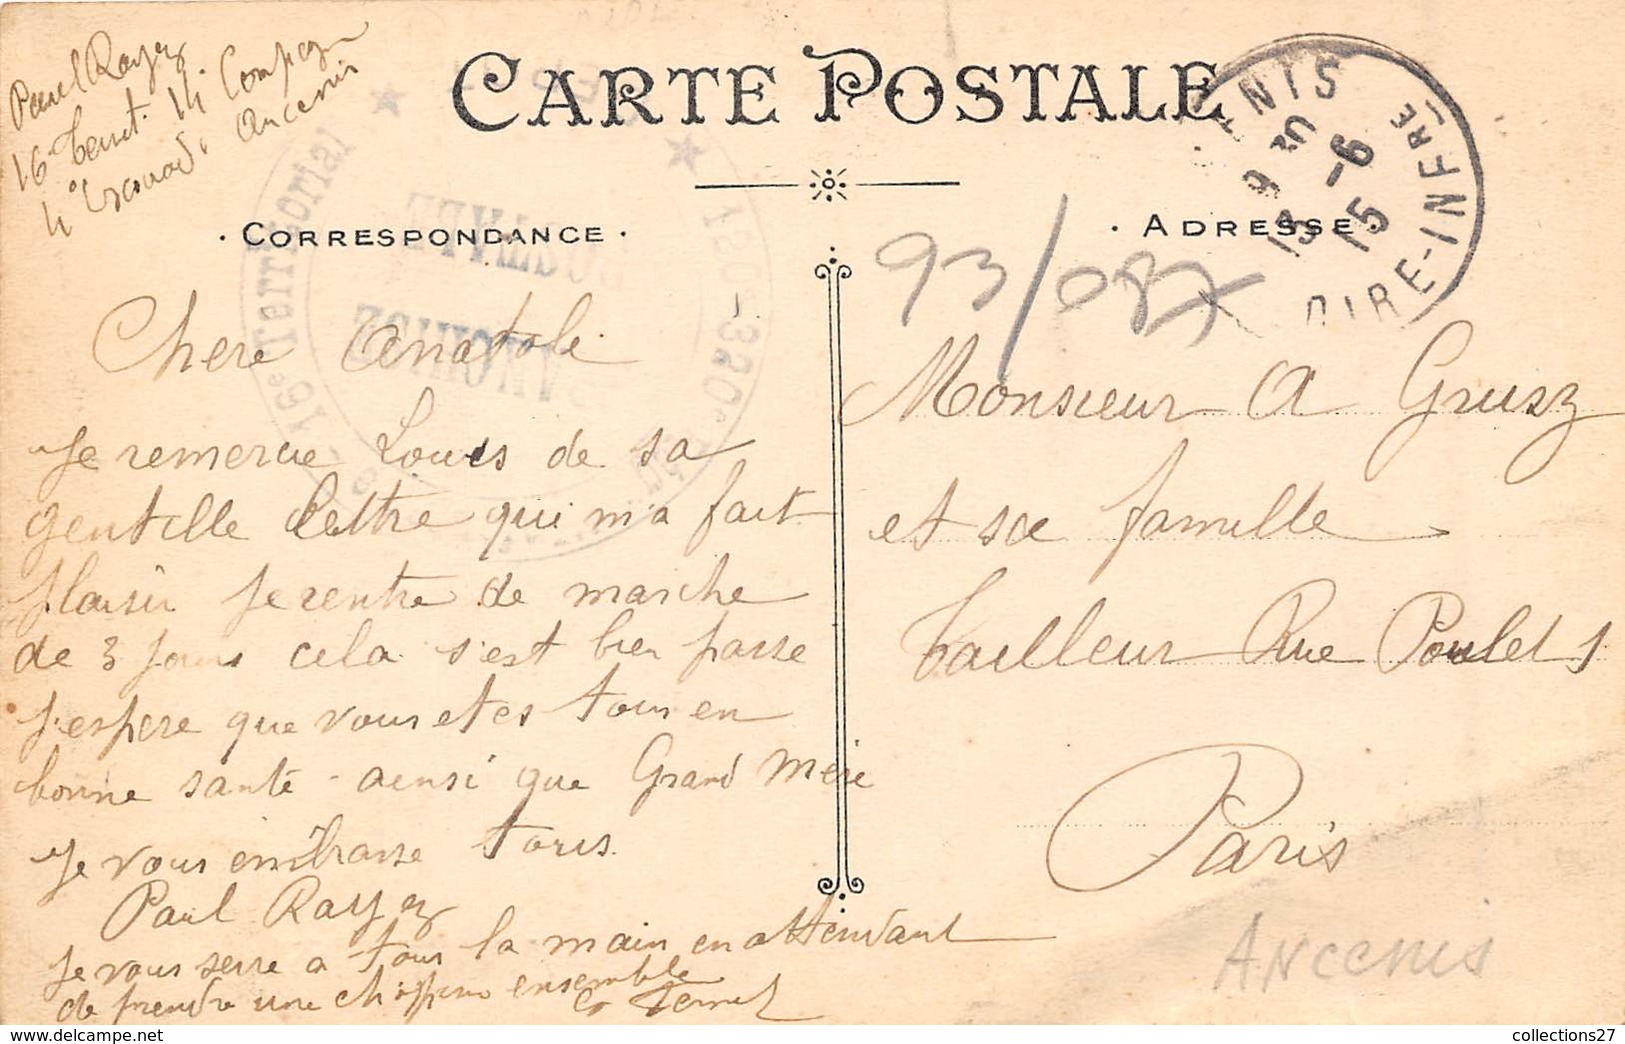 Paul Rayez
16 Territ. 14 Compagn
4e Escouade Ancenis
CARTE POSTALE
· CORRESPONDANCE ·
· ADRESSE ·
ENIS
9 30
13 -6
15
OIRE-INFRE
16e Territorial
320e
POSTALE
93/087
Chere Anatole
Je remercie Louis de sa
gentille lettre qui m'a fait
plaisir je rentre de marche
de 3 jours cela s'est bien passe
j'espere que vous etes tous en
bonne santé ainsi que Grand Mère
Je vous embrasse tous
Paul Rayez
je vous serre a tous la main en attendant
de prendre une chopine ensemble
Monsieur A Grusz
et sa famille
tailleur Rue Poulet 1
Paris
ANCENIS
collections27